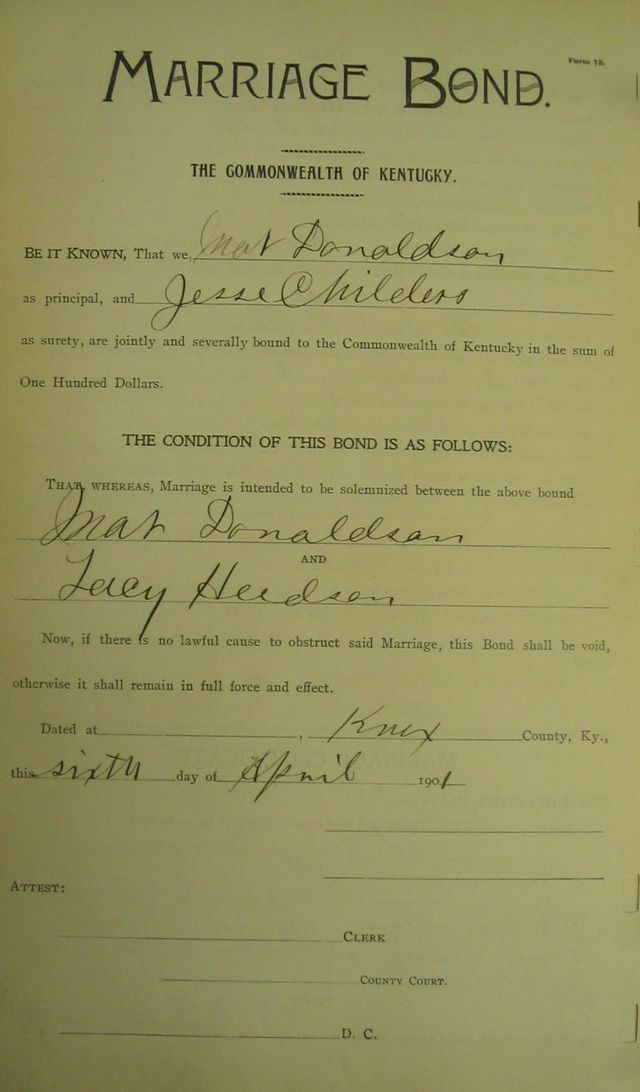 MARRIAGE BOND.
Form 73.
THE COMMONWEALTH OF KENTUCKY.
BE IT KNOWN, That we, Mat Donaldson
as principal, and Jesse Childers
as surety, are jointly and severally bound to the Commonwealth of Kentucky in the sum of
One Hundred Dollars.
THE CONDITION OF THIS BOND IS AS FOLLOWS:
THAT, WHEREAS, Marriage is intended to be solemnized between the above bound
Mat Donaldson
AND
Lucy Hudson
Now, if there is no lawful cause to obstruct said Marriage, this Bond shall be void,
otherwise it shall remain in full force and effect.
Dated at , Knox County, Ky.,
this sixth day of April 1901
ATTEST:
CLERK
COUNTY COURT.
D. C.